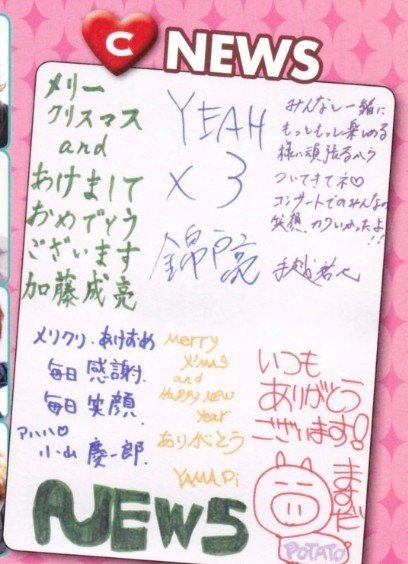 C NEWS
メリー
クリスマス
and
あけまして
おめでとう
ございます
加藤成亮
YEAH
×3
錦戸亮
みんなと一緒に
もっともっと楽しめる
様に頑張るから
ついてきてネ♡
コンサートでのみんなの
笑顔、カワいかったよ!!
手越祐也
メリクリ・あけおめ
毎日 感謝.
毎日 笑顔.
アハハ♡
小山 慶一郎.
Merry
X'mas
and
Happy New
Year
ありがとう
YAMAPi
いつも
ありがとう
ございます!
ますだ。
POTATO
NEWS